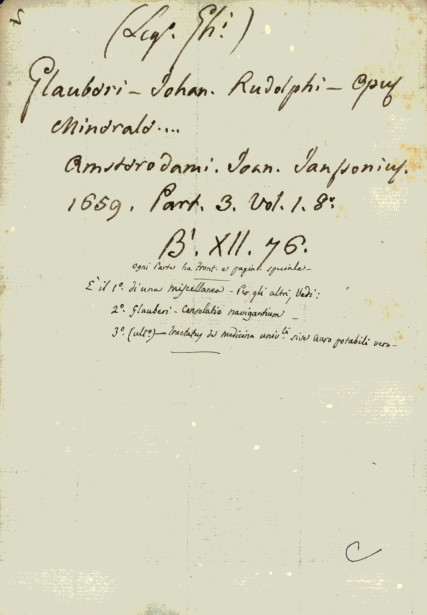 (Leg. Ghi)
Glauberi - Johan. Rudolphi - Opus
Minerale....
Amsterodami. Joan. Janssonius.
1659. Part. 3. Vol. 1. 8º.
B'. XII. 76.
Ogni Parte ha front. e pagin. speciale -
È il 1º. di una miscellanea - Per gli altri, Vedi:
2º. Glauberi - Consolatio navigantium
3º. (ult.º) - Tractatus de medicina univ.li sive auro potabili vero -
C